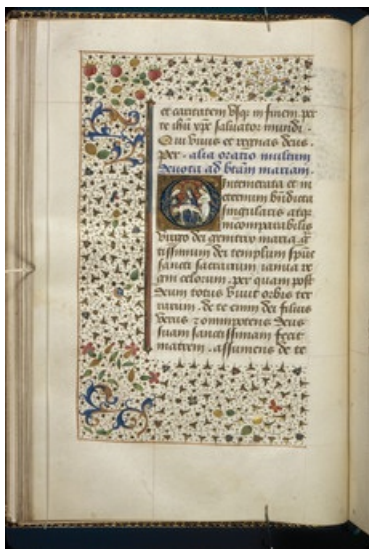 et caritatem vsq; in finem. per
te ihu xpe saluator mundi.
Qui viuis et regnas deus.
Per. alia oratio multum
deuota ad btam mariam.
O Intemerata et in
eternum bndicta
singularis atq;
incomparabilis
virgo dei genitrix maria gra
tissimum dei templum spus
sancti sacrarium. ianua re
gni celorum. per quam post
deum totus viuit orbis ter
rarum. de te enim dei filius
verus z omnipotens deus
suam sanctissimam fecit
matrem. assumens de te